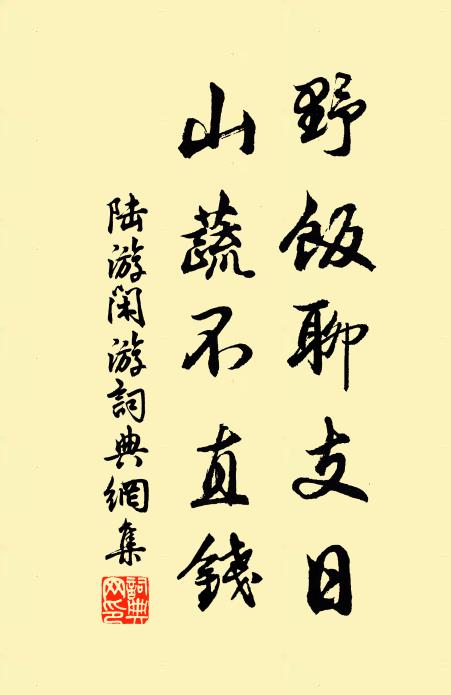 野飯聊支日
山蔬不直錢
陸游閑游詞典網集
詞典網印